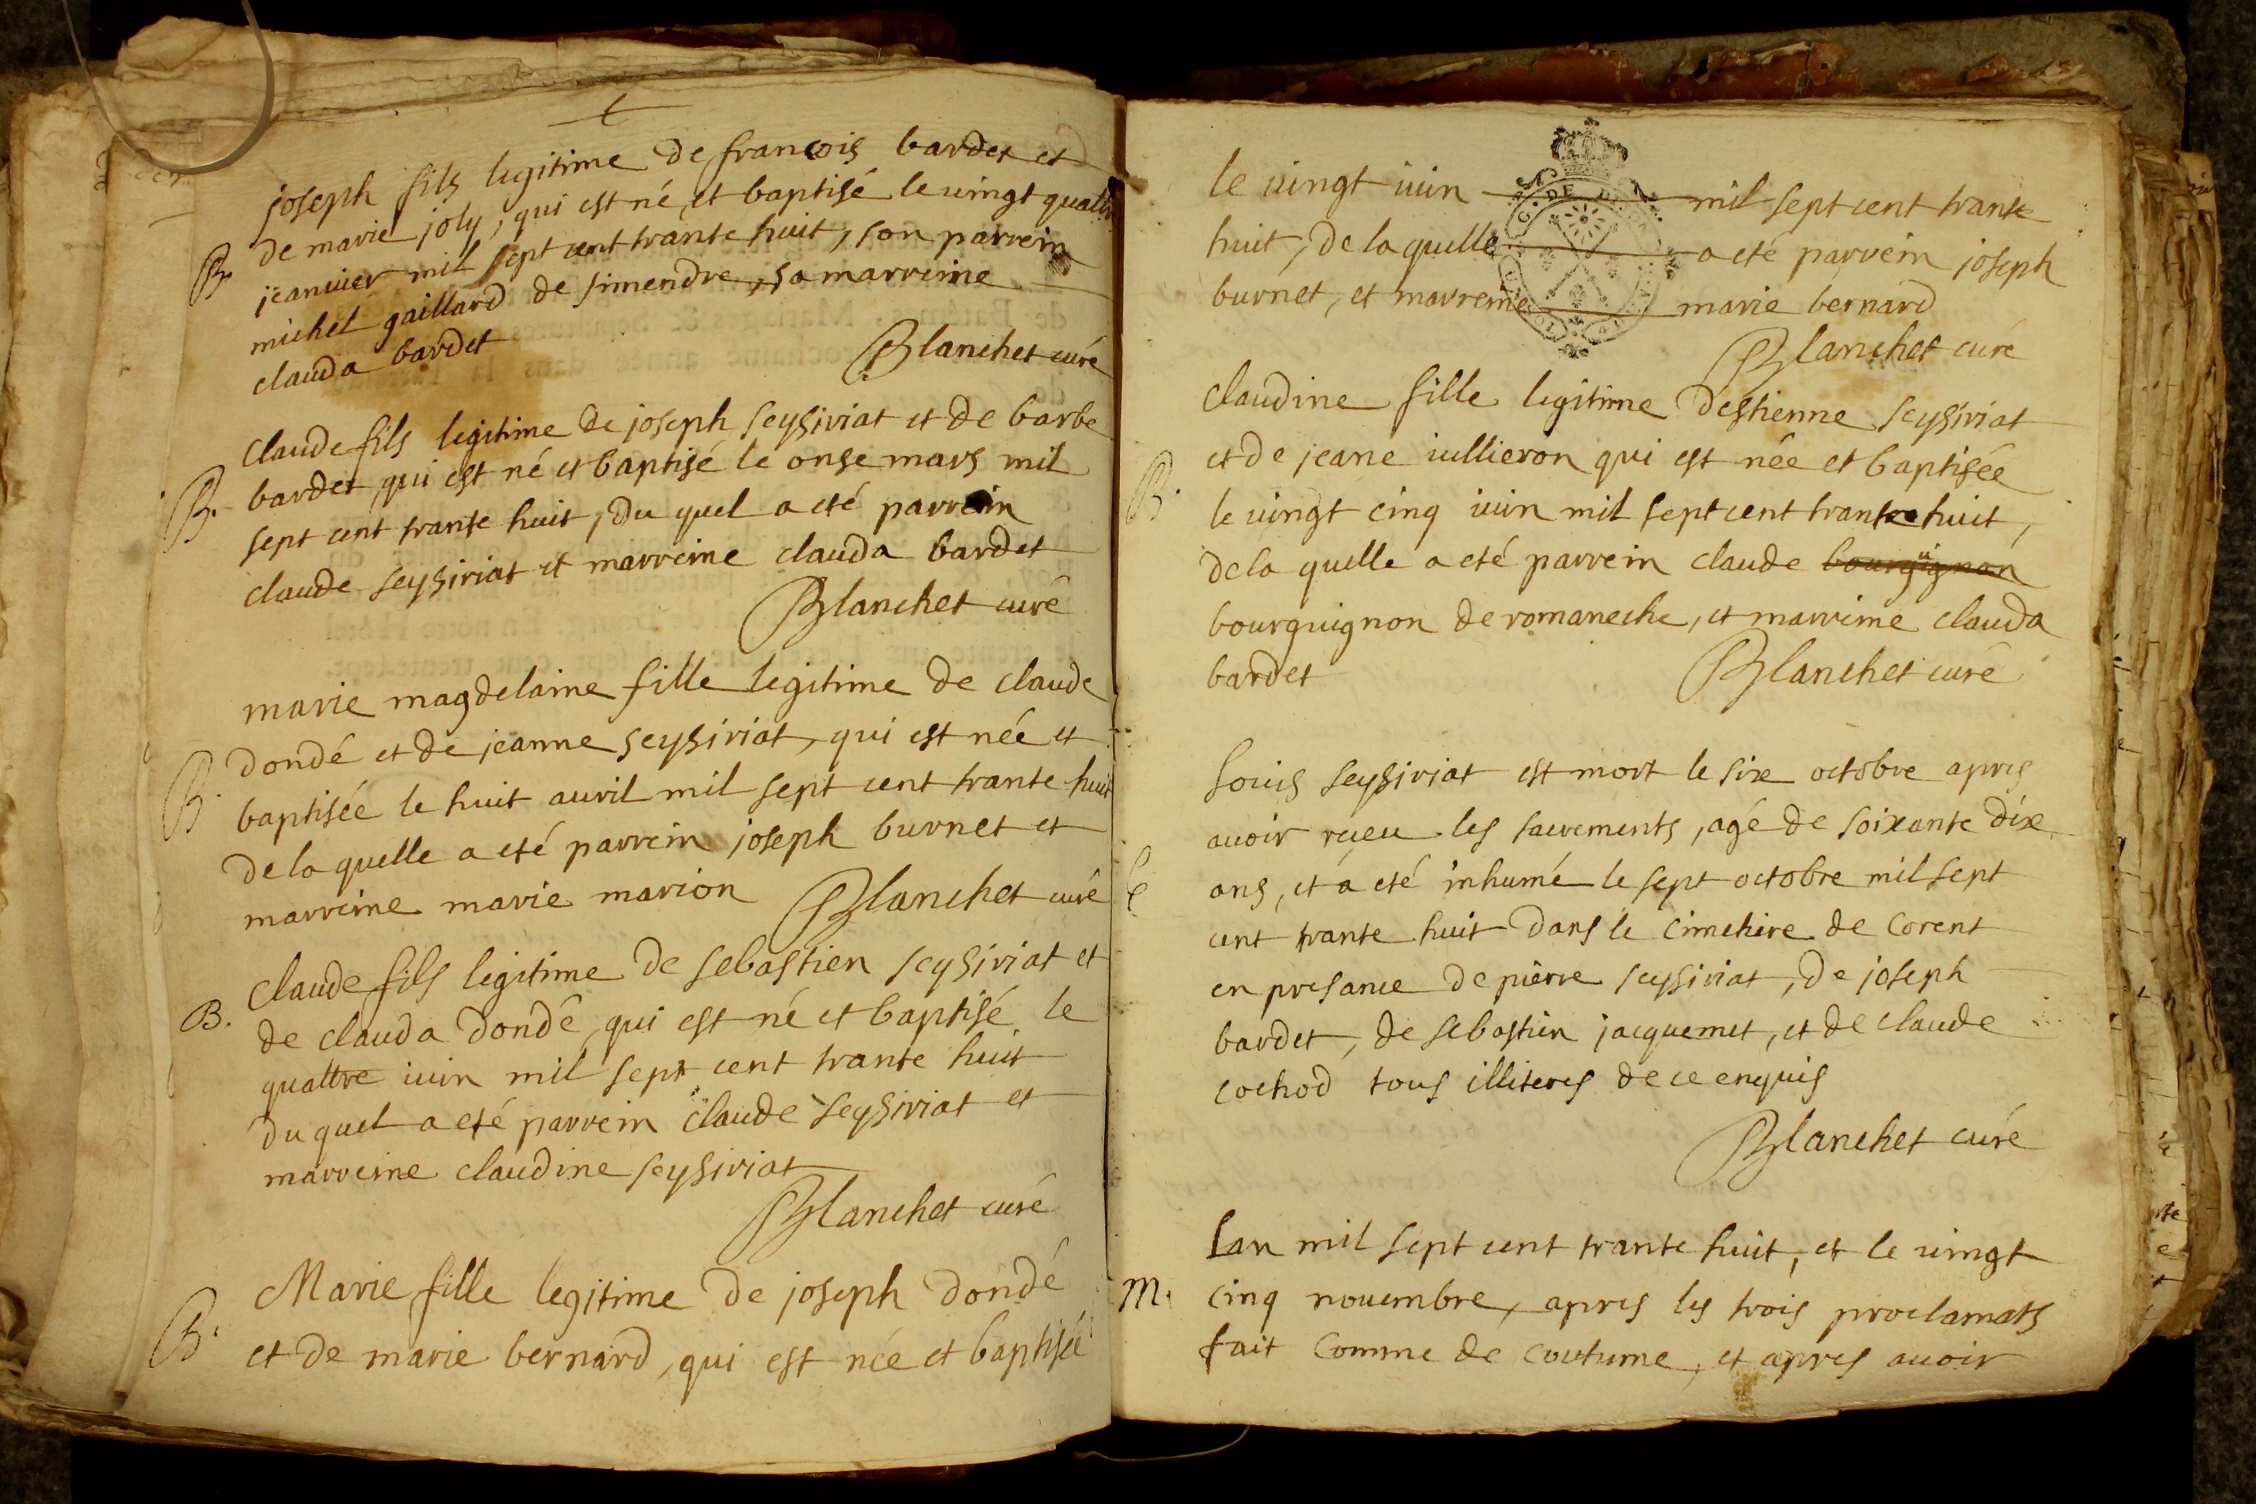 joseph fils legitime de francois bardet et
de marie joly, qui est né, et baptisé le vingt quattre
B. jeanvier mil sept cent trante huit, son parrein
michel gaillard de simendre, sa marreine
clauda bardet
Blanchet curé
claude fils legitime de joseph seysiriat et de barbe
B. bardet, qui est né et baptisé le onse mars mil
sept cent trante huit, du quel a eté parrein
claude seysiriat et marreine clauda bardet
Blanchet curé
marie magdelaine fille legitime de claude
B. dondé et de jeanne seysiriat, qui est née et
baptisée le huit auril mil sept cent trante huit
de la quelle a eté parrein joseph burnet et
marreine marie marion Blanchet curé
claude fils legitime de sebastien seysiriat et
B. de clauda dondé, qui est né et baptisé le
quattre iuin mil sept cent trante huit
du quel a eté parrein claude seysiriat et
marreine claudine seysiriat
Blanchet curé
Marie fille legitime de joseph dondé
B. et de marie bernard, qui est née et baptisée
le uingt iuin mil sept cent trante
huit, de la quelle a eté parrein joseph
burnet, et marreine marie bernard
Blanchet curé
claudine fille legitime destienne seysiriat
B. et de jeane iullieron qui est née et baptisée
le uingt cinq iuin mil sept cent trante huit,
de la quelle a eté parrein claude bourguignon
bourguignon de romaneche, et marreine clauda
bardet Blanchet curé
Louis seysiriat est mort le six octobre apres
auoir reçeu les sacrements, agé de soixante dix
ans, et a eté inhumé le sept octobre mil sept
cent trante huit dans le cimetiere de Corent
en presance de pierre seysiriat, de joseph
bardet, de sebastien jacquemet, et de claude
cochod tous illiteres de ce enquis
Blanchet curé
Lan mil sept cent trante huit, et le uingt
M. cinq nouembre, apres les trois proclamats
fait Comme de coutume, et apres auoir